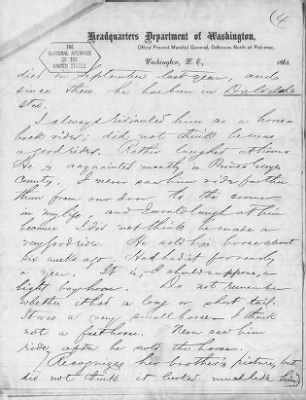 (4
Headquarters Department of Washington,
THE NATIONAL ARCHIVES OF THE UNITED STATES
Office Provost Marshal General, Defences North of Potomac,
Washington, D. C., 186
died in September last year, and
since then he has been in
I always ridiculed him as a horse-
back rider; did not think he was
a good rider. Rather laughed at him.
He is acquainted mostly in Prince George
County. I never saw him ride farther
than from our door to the corner
in my life, and I would laugh at him
because I did not think he made a
very good rider. He sold his horse about
six weeks ago. Had had it for nearly
a year. It is, I should suppose, a
light bay horse. Do not remember
whether it had a long or short tail.
It was a very small horse I think
not a fast horse. Never saw him
ride after he sold the horse.
Recognizes her brother's picture, but
did not think it looked much like him